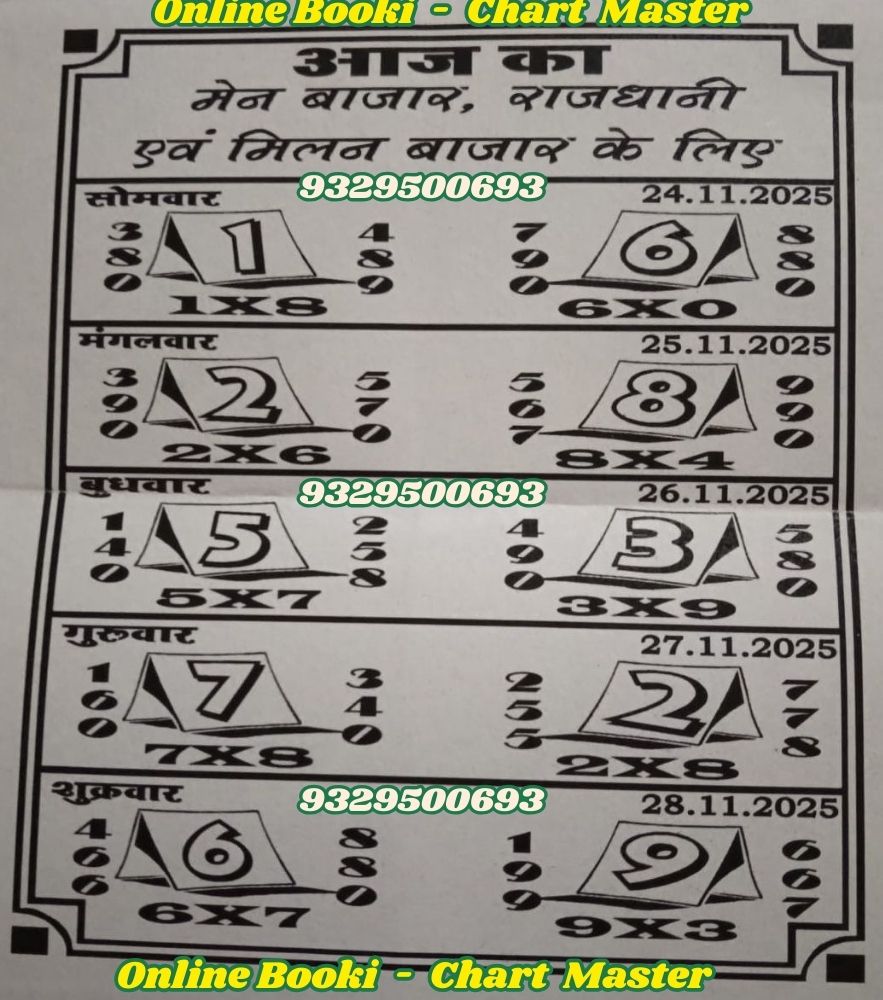 Online Booki - Chart Master
आज का
मेन बाजार, राजधानी
एवं मिलन बाजार के लिए
9329500693
सोमवार 24.11.2025
3 1 4 7 6 8
8 8 9 8
0 9 0 0
1X8 6X0
मंगलवार 25.11.2025
3 2 5 5 8 9
9 7 6 9
0 0 7 0
2X6 8X4
बुधवार 9329500693 26.11.2025
1 5 2 4 3 5
4 5 9 8
0 8 0 0
5X7 3X9
गुरुवार 27.11.2025
1 7 3 2 2 7
6 4 5 7
0 0 5 8
7X8 2X8
शुक्रवार 9329500693 28.11.2025
4 6 8 1 9 6
6 8 9 6
6 0 9 7
6X7 9X3
Online Booki - Chart Master